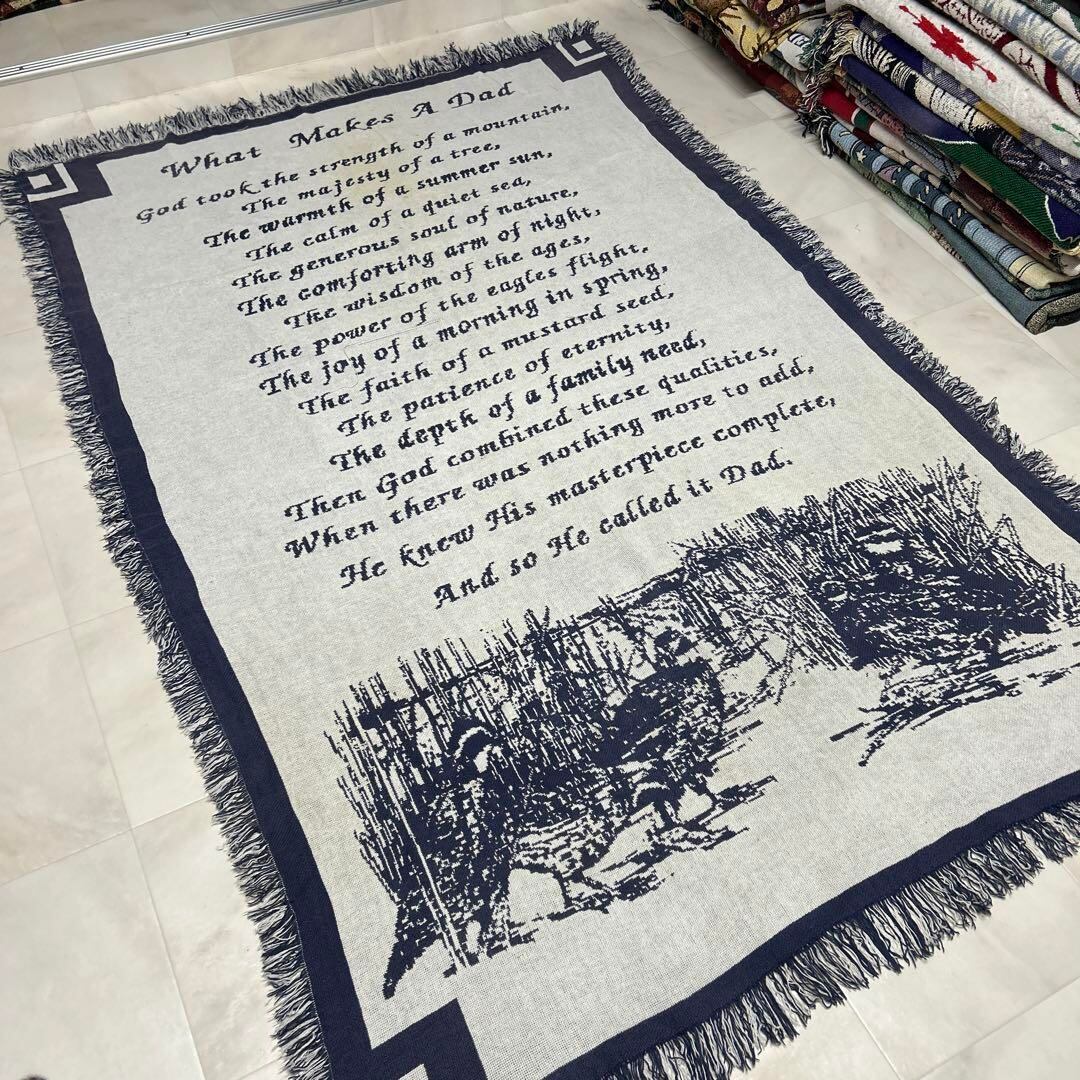 What Makes A Dad
God took the strength of a mountain,
The majesty of a tree,
The warmth of a summer sun,
The calm of a quiet sea,
The generous soul of nature,
The comforting arm of night,
The wisdom of the ages,
The power of the eagles flight,
The joy of a morning in spring,
The faith of a mustard seed,
The patience of eternity,
The depth of a family need,
Then God combined these qualities,
When there was nothing more to add,
He knew His masterpiece complete,
And so He called it Dad.